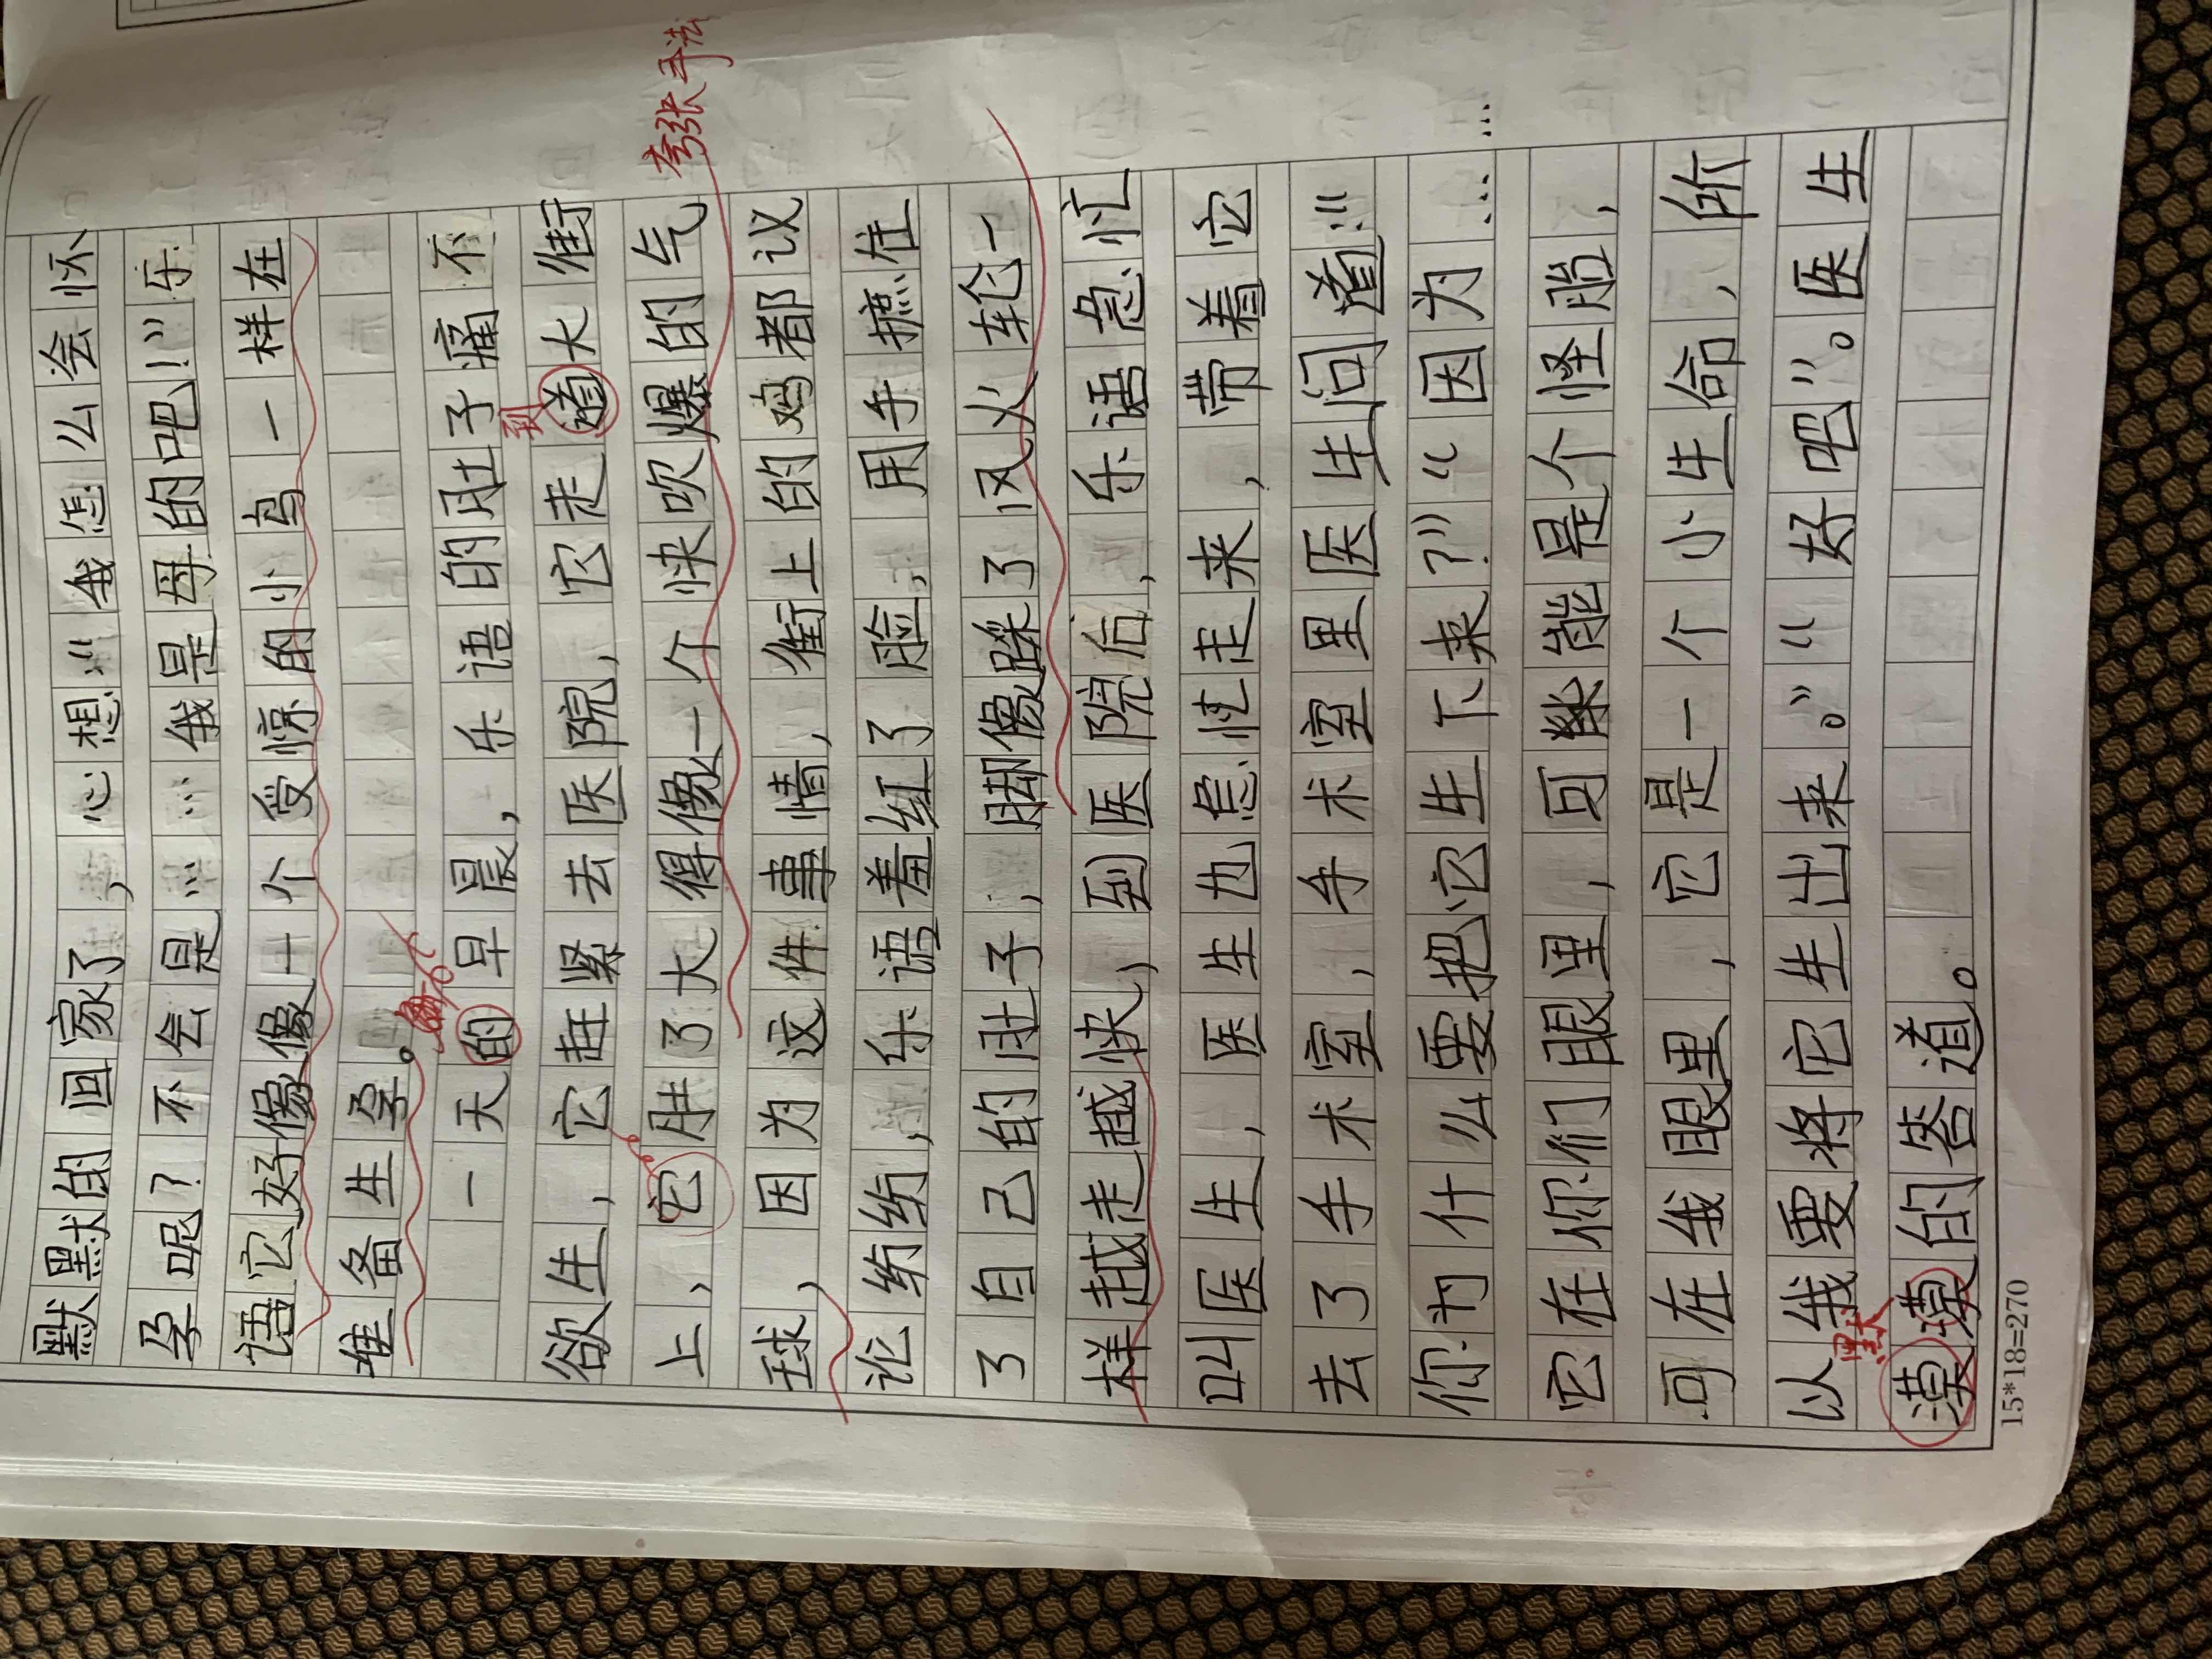 默默的回家了，心想：“我怎么会怀
孕呢？不会是……我是母的吧！”乐
语它好像像一个受惊的小鸟一样在
准备生孕。
一天的早晨，乐语的肚子痛不
欲生，它赶紧去医院，它走道大街
到
上，它肚了大得像一个快吹爆的气
夸张手法
球，因为这件事情，街上的鸡都议
论纷纷，乐语羞红了脸，用手摭住
了自己的肚子，脚像踩了风火轮一
样越走越快，到医院后，乐语急忙
叫医生，医生也急忙走来，带着它
去了手术室，手术室里医生问道：“
你为什么要把它生下来？”“因为……
它在你们眼里，可能是个怪胎，
可在我眼里，它是一个小生命，所
以我要将它生出来。”“好吧”。医生
默
漠漠的答道。
15*18=270